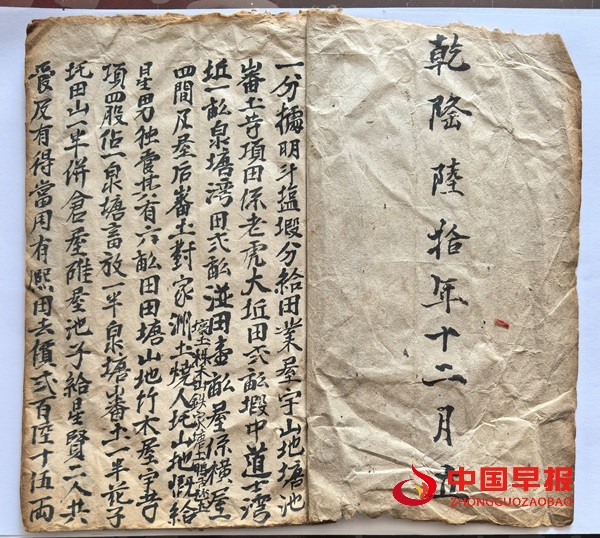 乾隆陸拾年十二月
一分明斗塩塅分給田業屋宇山地塘池
畨土等項田係老虎大坵田弍畝塅中道士湾
坵一畝泉塘湾田弍畝湴田壹畝屋係横屋
四間及屋后畨土對家洲土燒人坵山地慨給
土株木鉄家塘土鴨土
星男独管其有六畝田田塘山地竹木屋宇等
項四股佔一泉塘畜放一半泉塘畨土一半花子
坵田山一半併倉屋碓屋池子給星賢二人共
管及有得當用有熙田去價弍百陸十伍両
中国早报
ZHONGGUOZAOBAO